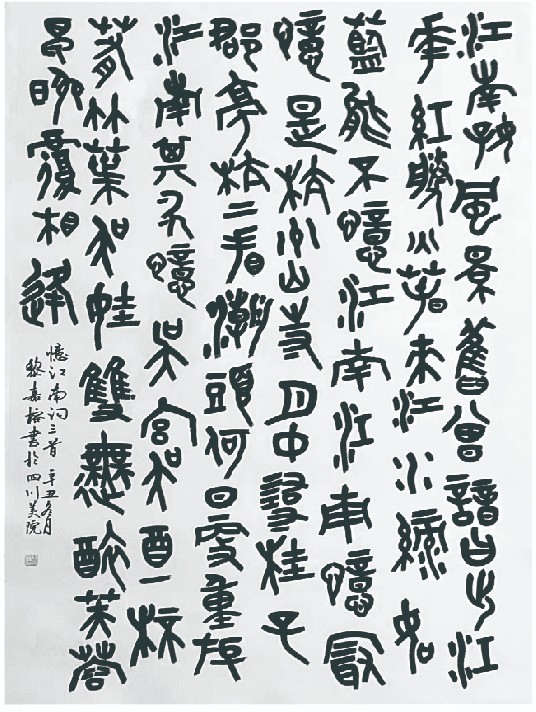 江南好風景舊曾諳日出江
花紅勝火春來江水綠如
藍能不憶江南江南憶最
憶是杭州山寺月中尋桂子
郡亭枕上看潮頭何日更重遊
江南其次憶吳宮吳酒一杯
春竹葉吳娃雙舞醉芙蓉
早晚復相逢
憶江南詞三首 辛丑冬月
黎嘉榕書於四川美院